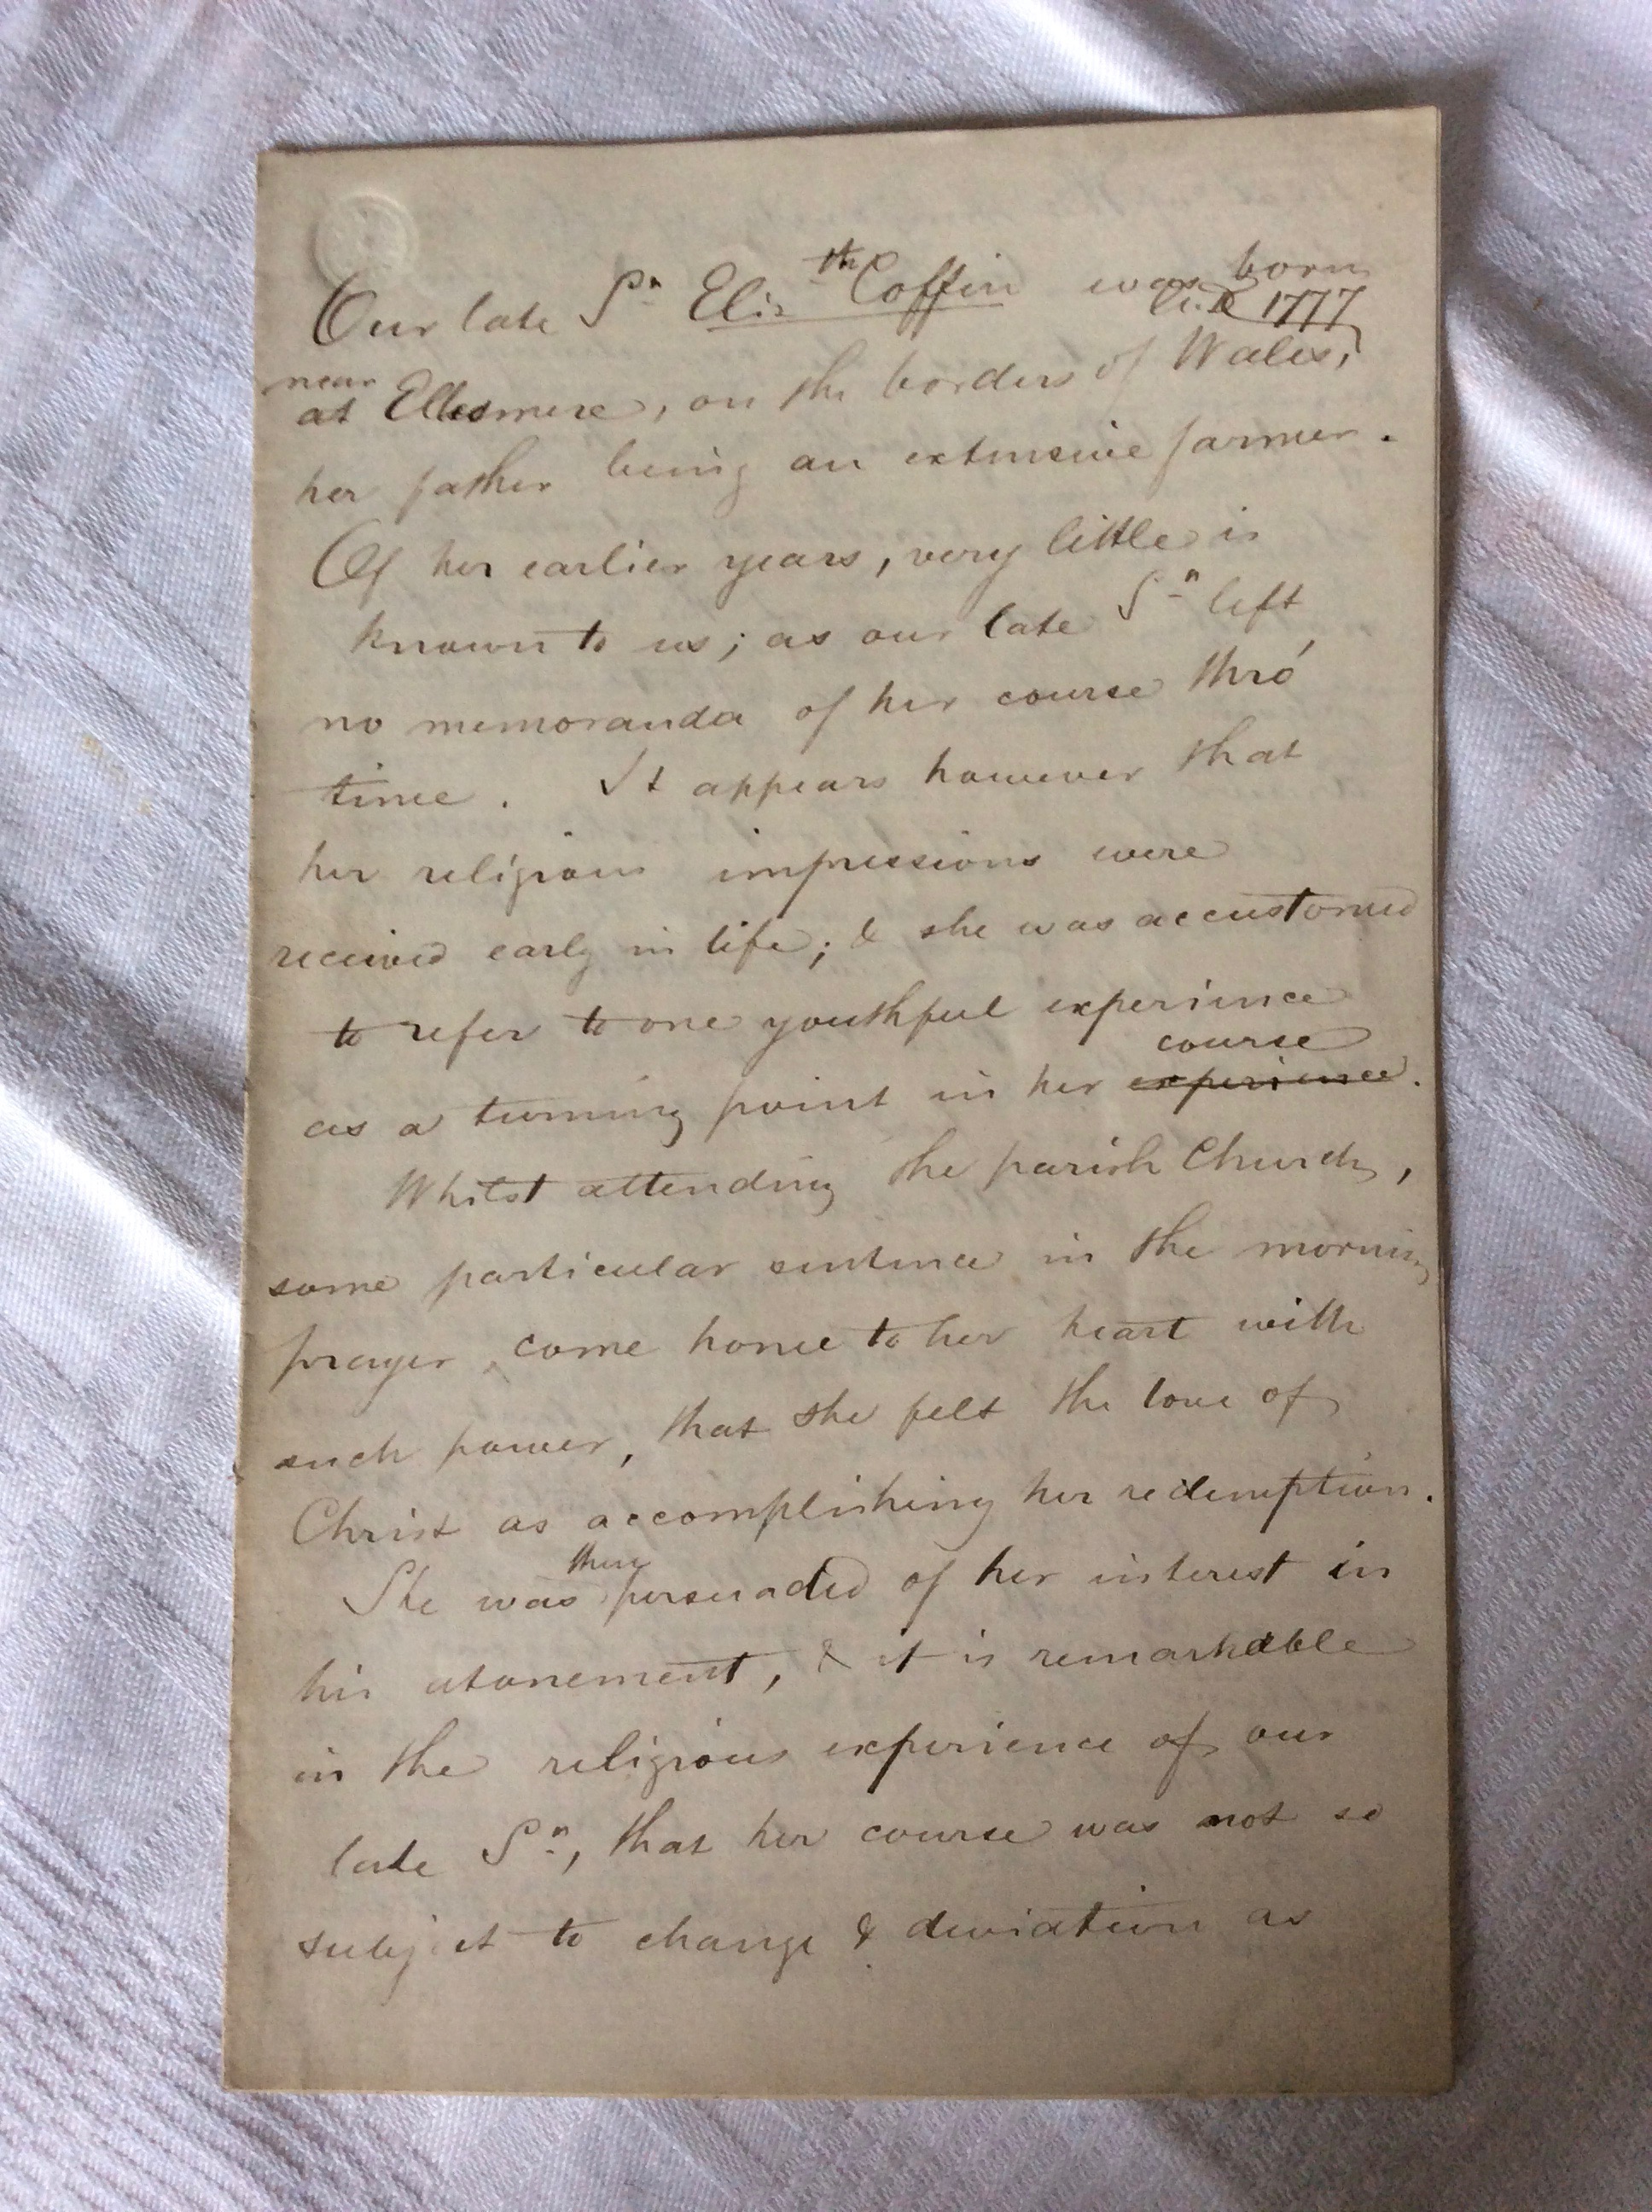 Our late Sr. Elizth Coffin was born
A.D. 1777
near
at Ellesmere, on the borders of Wales,
her father being an extensive farmer.
Of her earlier years, very little is
known to us; as our late Sr. left
no memoranda of her course thro'
time. It appears however that
her religious impressions were
received early in life; & she was accustomed
to refer to one youthful experience
course
as a turning point in her experience.
Whilst attending the parish Church,
some particular sentence in the morning
prayer, came home to her heart with
such power, that she felt the love of
Christ as accomplishing her redemption.
She was persuaded of her interest in
his atonement, & it is remarkable
in the religious experience of our
late Sr., that her course was not so
subject to change & deviation as